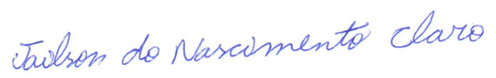 Jailson do Nascimento Claro